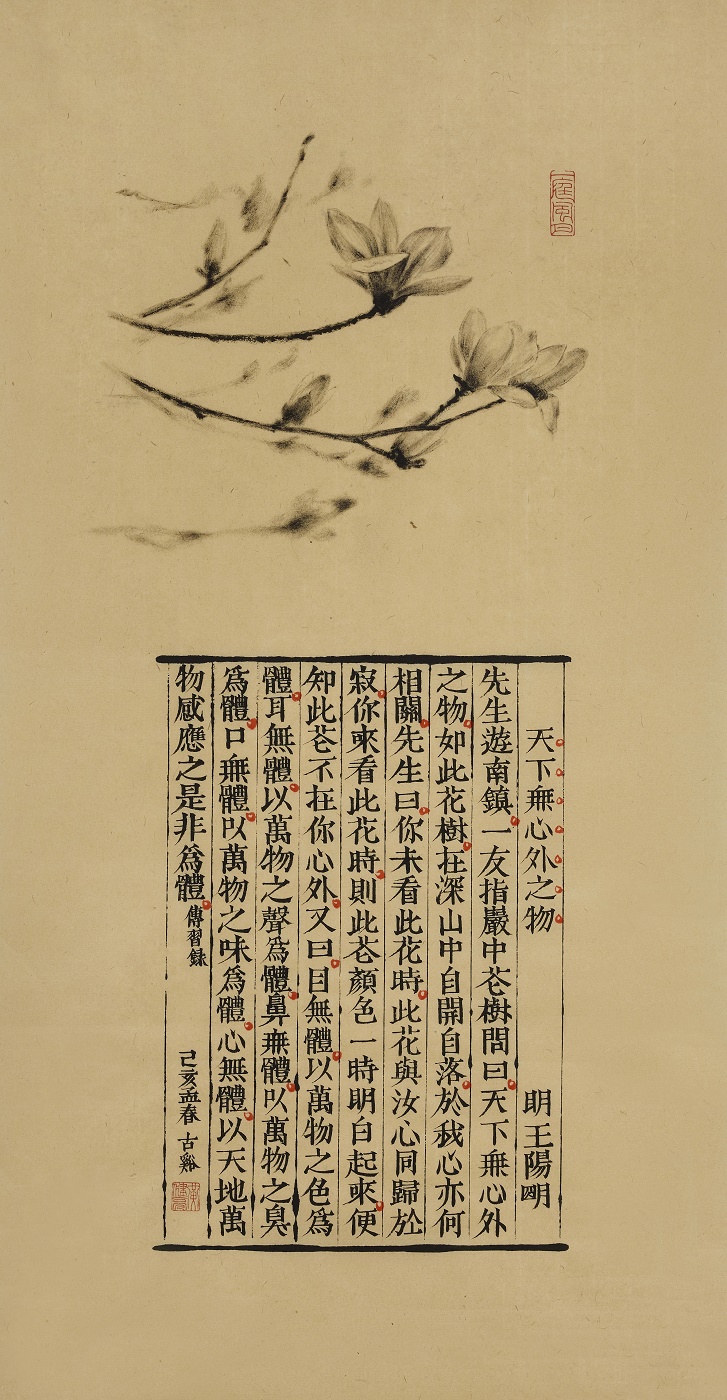 一庭風日
天下無心外之物 明王陽明
先生遊南鎮。一友指巖中花樹問曰。天下無心外
之物。如此花樹。在深山中自開自落。於我心亦何
相關。先生曰。你未看此花時。此花與汝心同歸於
寂。你來看此花時。則此花顏色一時明白起來。便
知此花不在你心外。又曰。目無體。以萬物之色為
體。耳無體。以萬物之聲為體。鼻無體。以萬物之臭
為體。口無體。以萬物之味為體。心無體。以天地萬
物感應之是非為體。傳習錄 己亥孟春 古谿